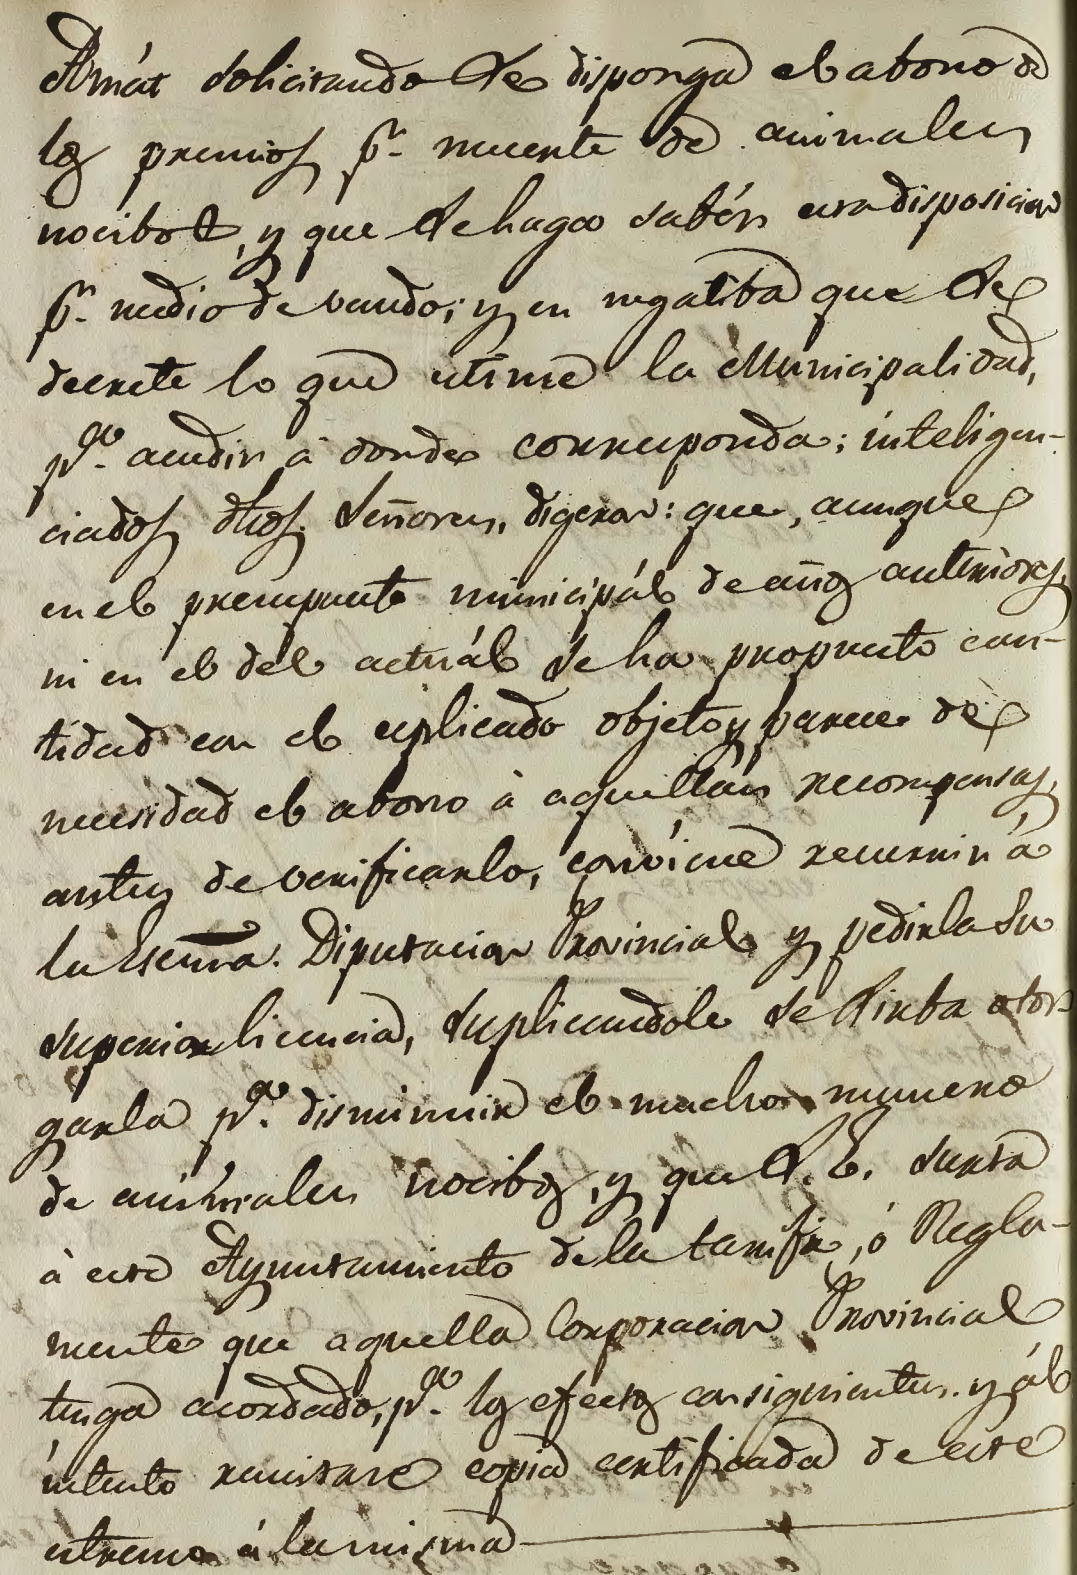 Amát solicitando se disponga el abono de
los premios pr. muerte de animales
nocibos, y que se haga sabér esta disposicion
pr. medio de vando; y en negatiba que se
decrete lo que estime la Municipalidad,
pa. acudir á donde corresponda; inteligen-
ciados dhos. Señores, digeron: que, aunque
en el presupuesto municipál de años anteriores,
ni en el del actuál se ha propuesto can-
tidad con el esplicado objeto y parece de
necesidad el abono á aquellas recompensas,
antes de verificarlo, conviene recurrir á
la Escma. Diputacion Provincial y pedirla su
superior licencia, suplicandole se sirba otor
garla pa. disminuir el mucho numero
de animales nocibos, y que S. E. surta
á este Ayuntamiento de la tarifa, ó Regla-
mento que aquella Corporacion Provincial
tenga acordado, pa. los efectos consiguientes. y ál
intento remitase copia certificada de este
estremo á la misma